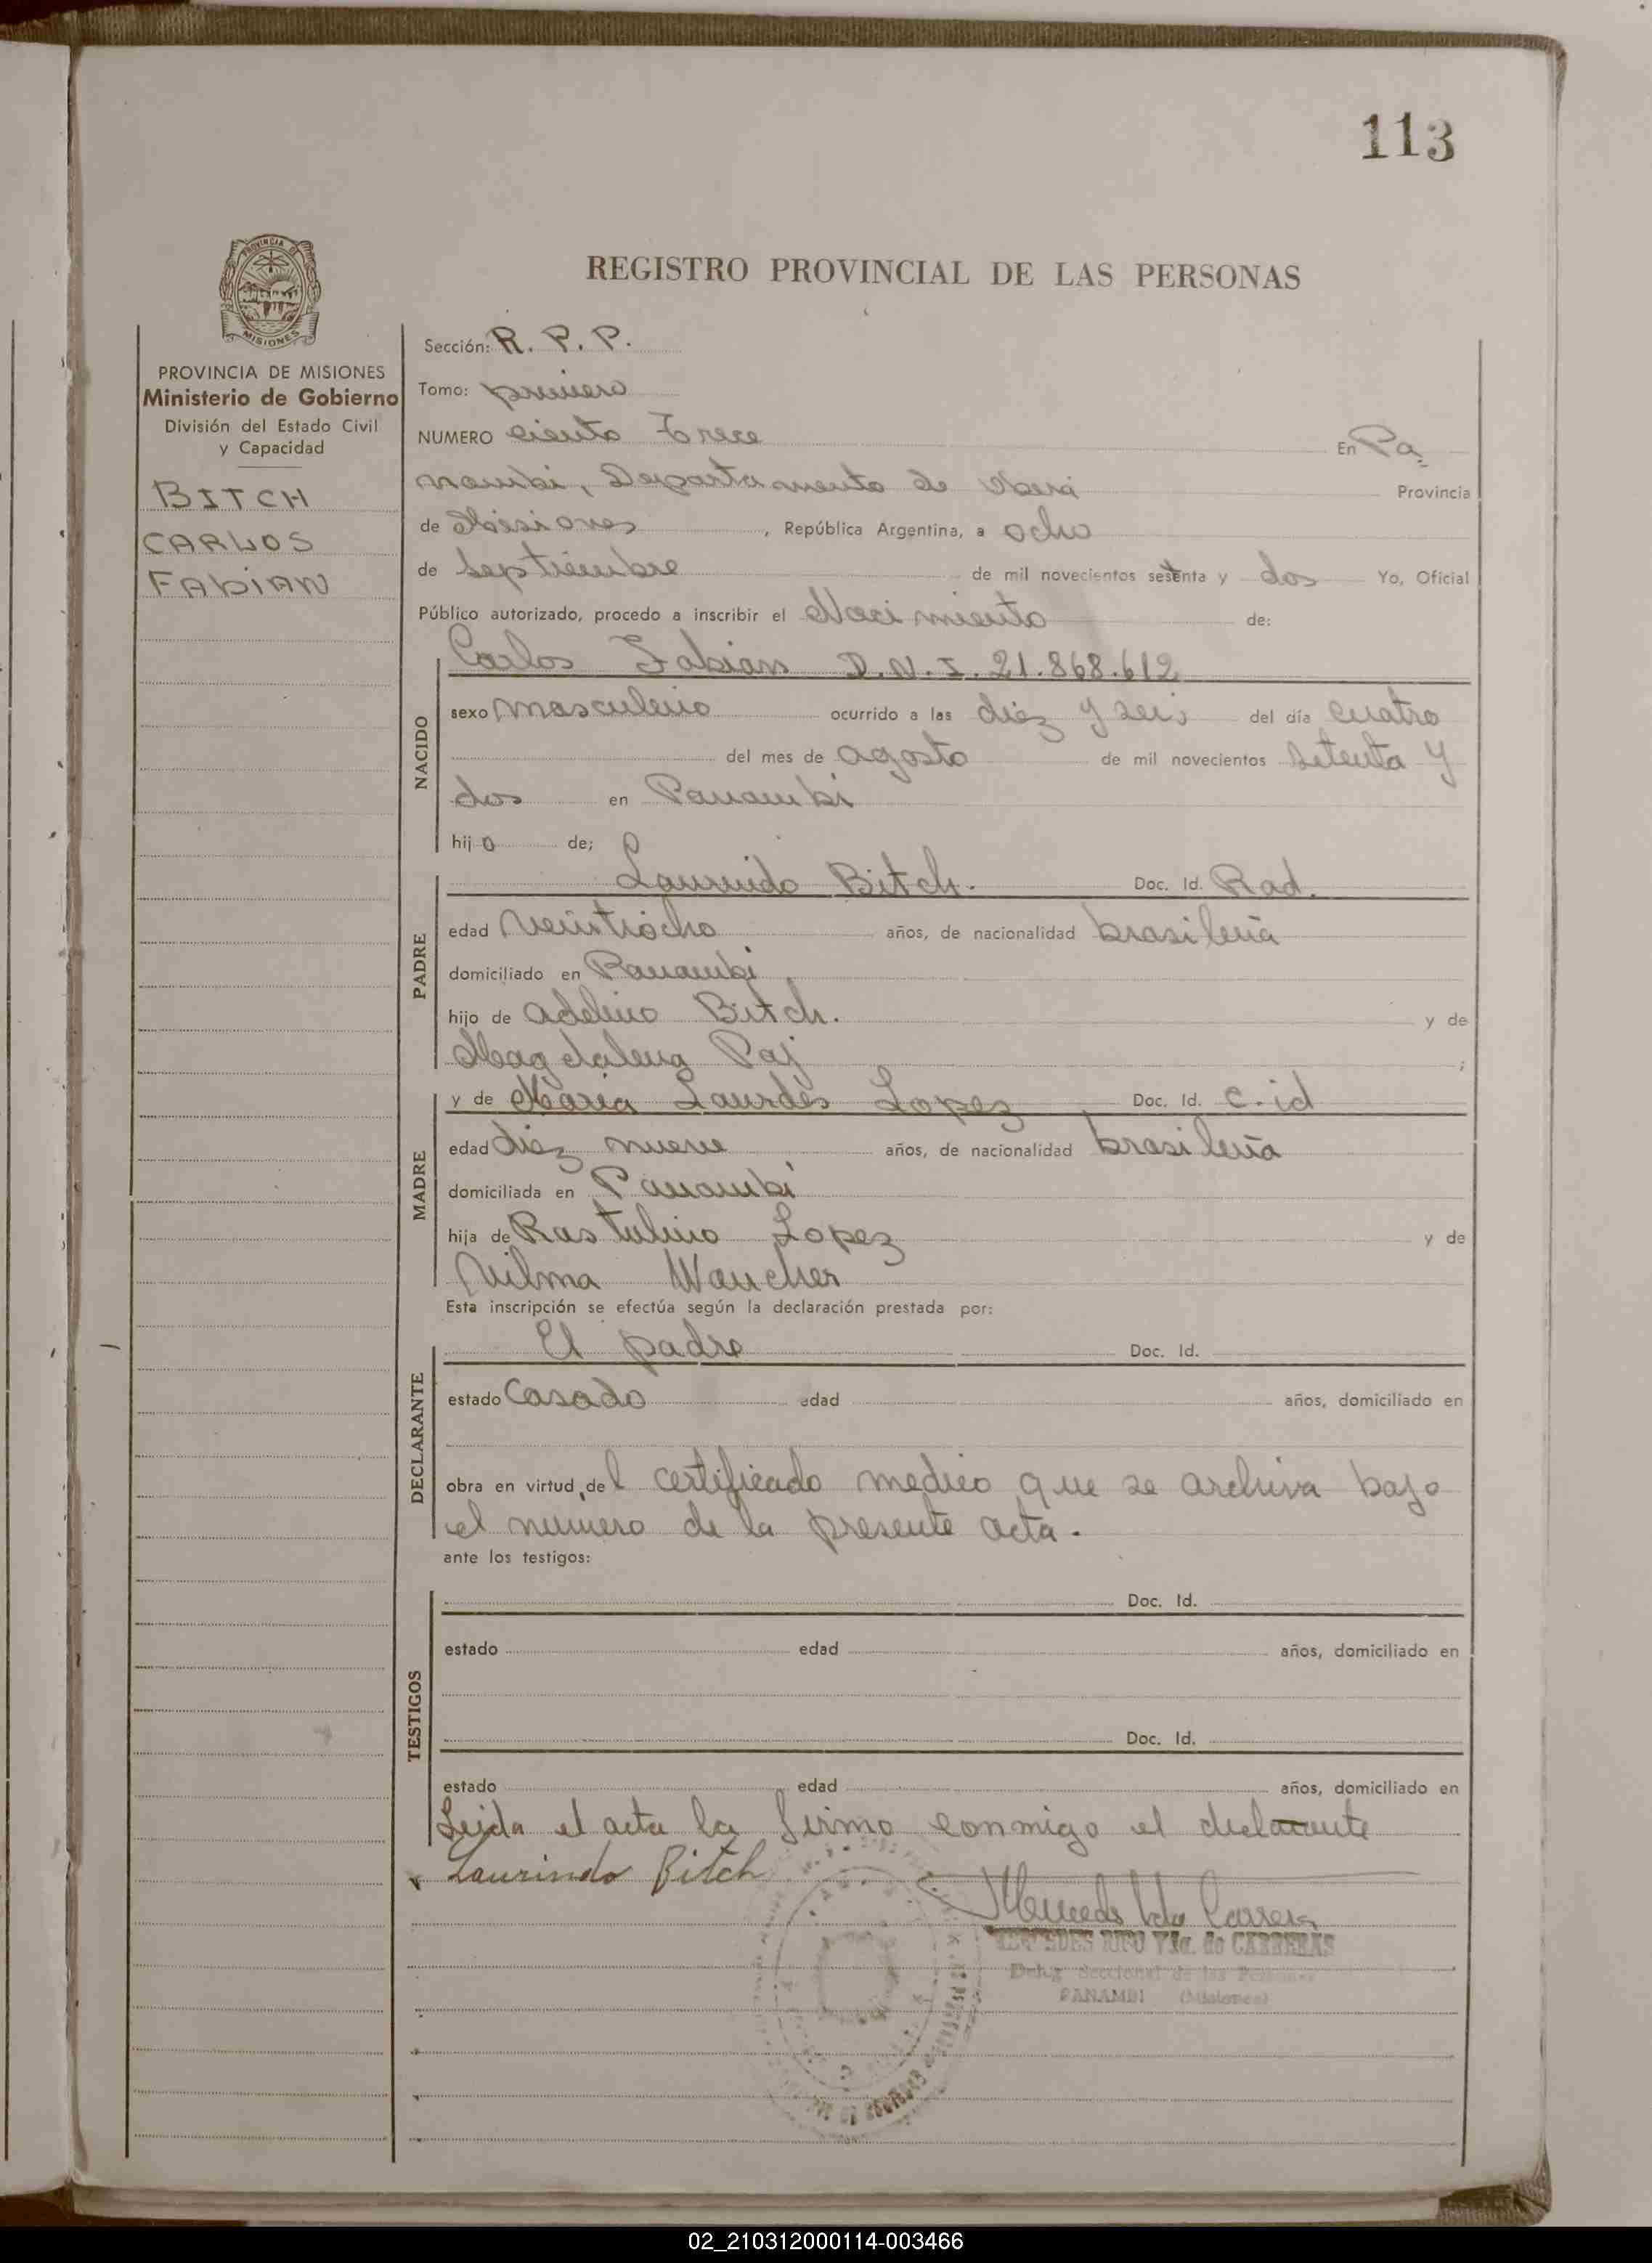 113
PROVINCIA DE
MISIONES
REGISTRO PROVINCIAL DE LAS PERSONAS
PROVINCIA DE MISIONES
Ministerio de Gobierno
División del Estado Civil
y Capacidad
BITCH
CARLOS
FABIAN
Sección: R. P. P.
Tomo: primero
NUMERO ciento Trece En Pa=
nambi, Departamento de Oberá Provincia
de Misiones, República Argentina, a ocho
de Septiembre de mil novecientos setenta y dos Yo, Oficial
Público autorizado, procedo a inscribir el Nacimiento de:
NACIDO
Carlos Fabian D.N.I. 21.868.612
sexo masculino ocurrido a las diez y seis del día cuatro
del mes de agosto de mil novecientos setenta y
dos en Panambi
hijo de;
PADRE
Laurindo Bitch. Doc. Id. Rad.
edad veintiocho años, de nacionalidad brasileña
domiciliado en Panambi
hijo de Adelino Bitch. y de
Magdalena Paj ;
MADRE
y de Maria Lourdes Lopez Doc. Id. c.id
edad diez nueve años, de nacionalidad brasileña
domiciliada en Panambi
hija de Rastulino Lopez y de
Vilma Waucher
Esta inscripción se efectúa según la declaración prestada por:
DECLARANTE
El padre Doc. Id.
estado Casado edad años, domiciliado en
obra en virtud, del certificado medico que se archiva bajo
el numero de la presente acta.
ante los testigos:
TESTIGOS
Doc. Id.
estado edad años, domiciliado en
Doc. Id.
estado edad años, domiciliado en
Leida el acta la firmo conmigo el declarante
Laurindo Bitch
MERCEDES RIPO Vda. de CARRERAS
Deleg. Seccional de las Personas
PANAMBI (Misiones)
02_210312000114-003466